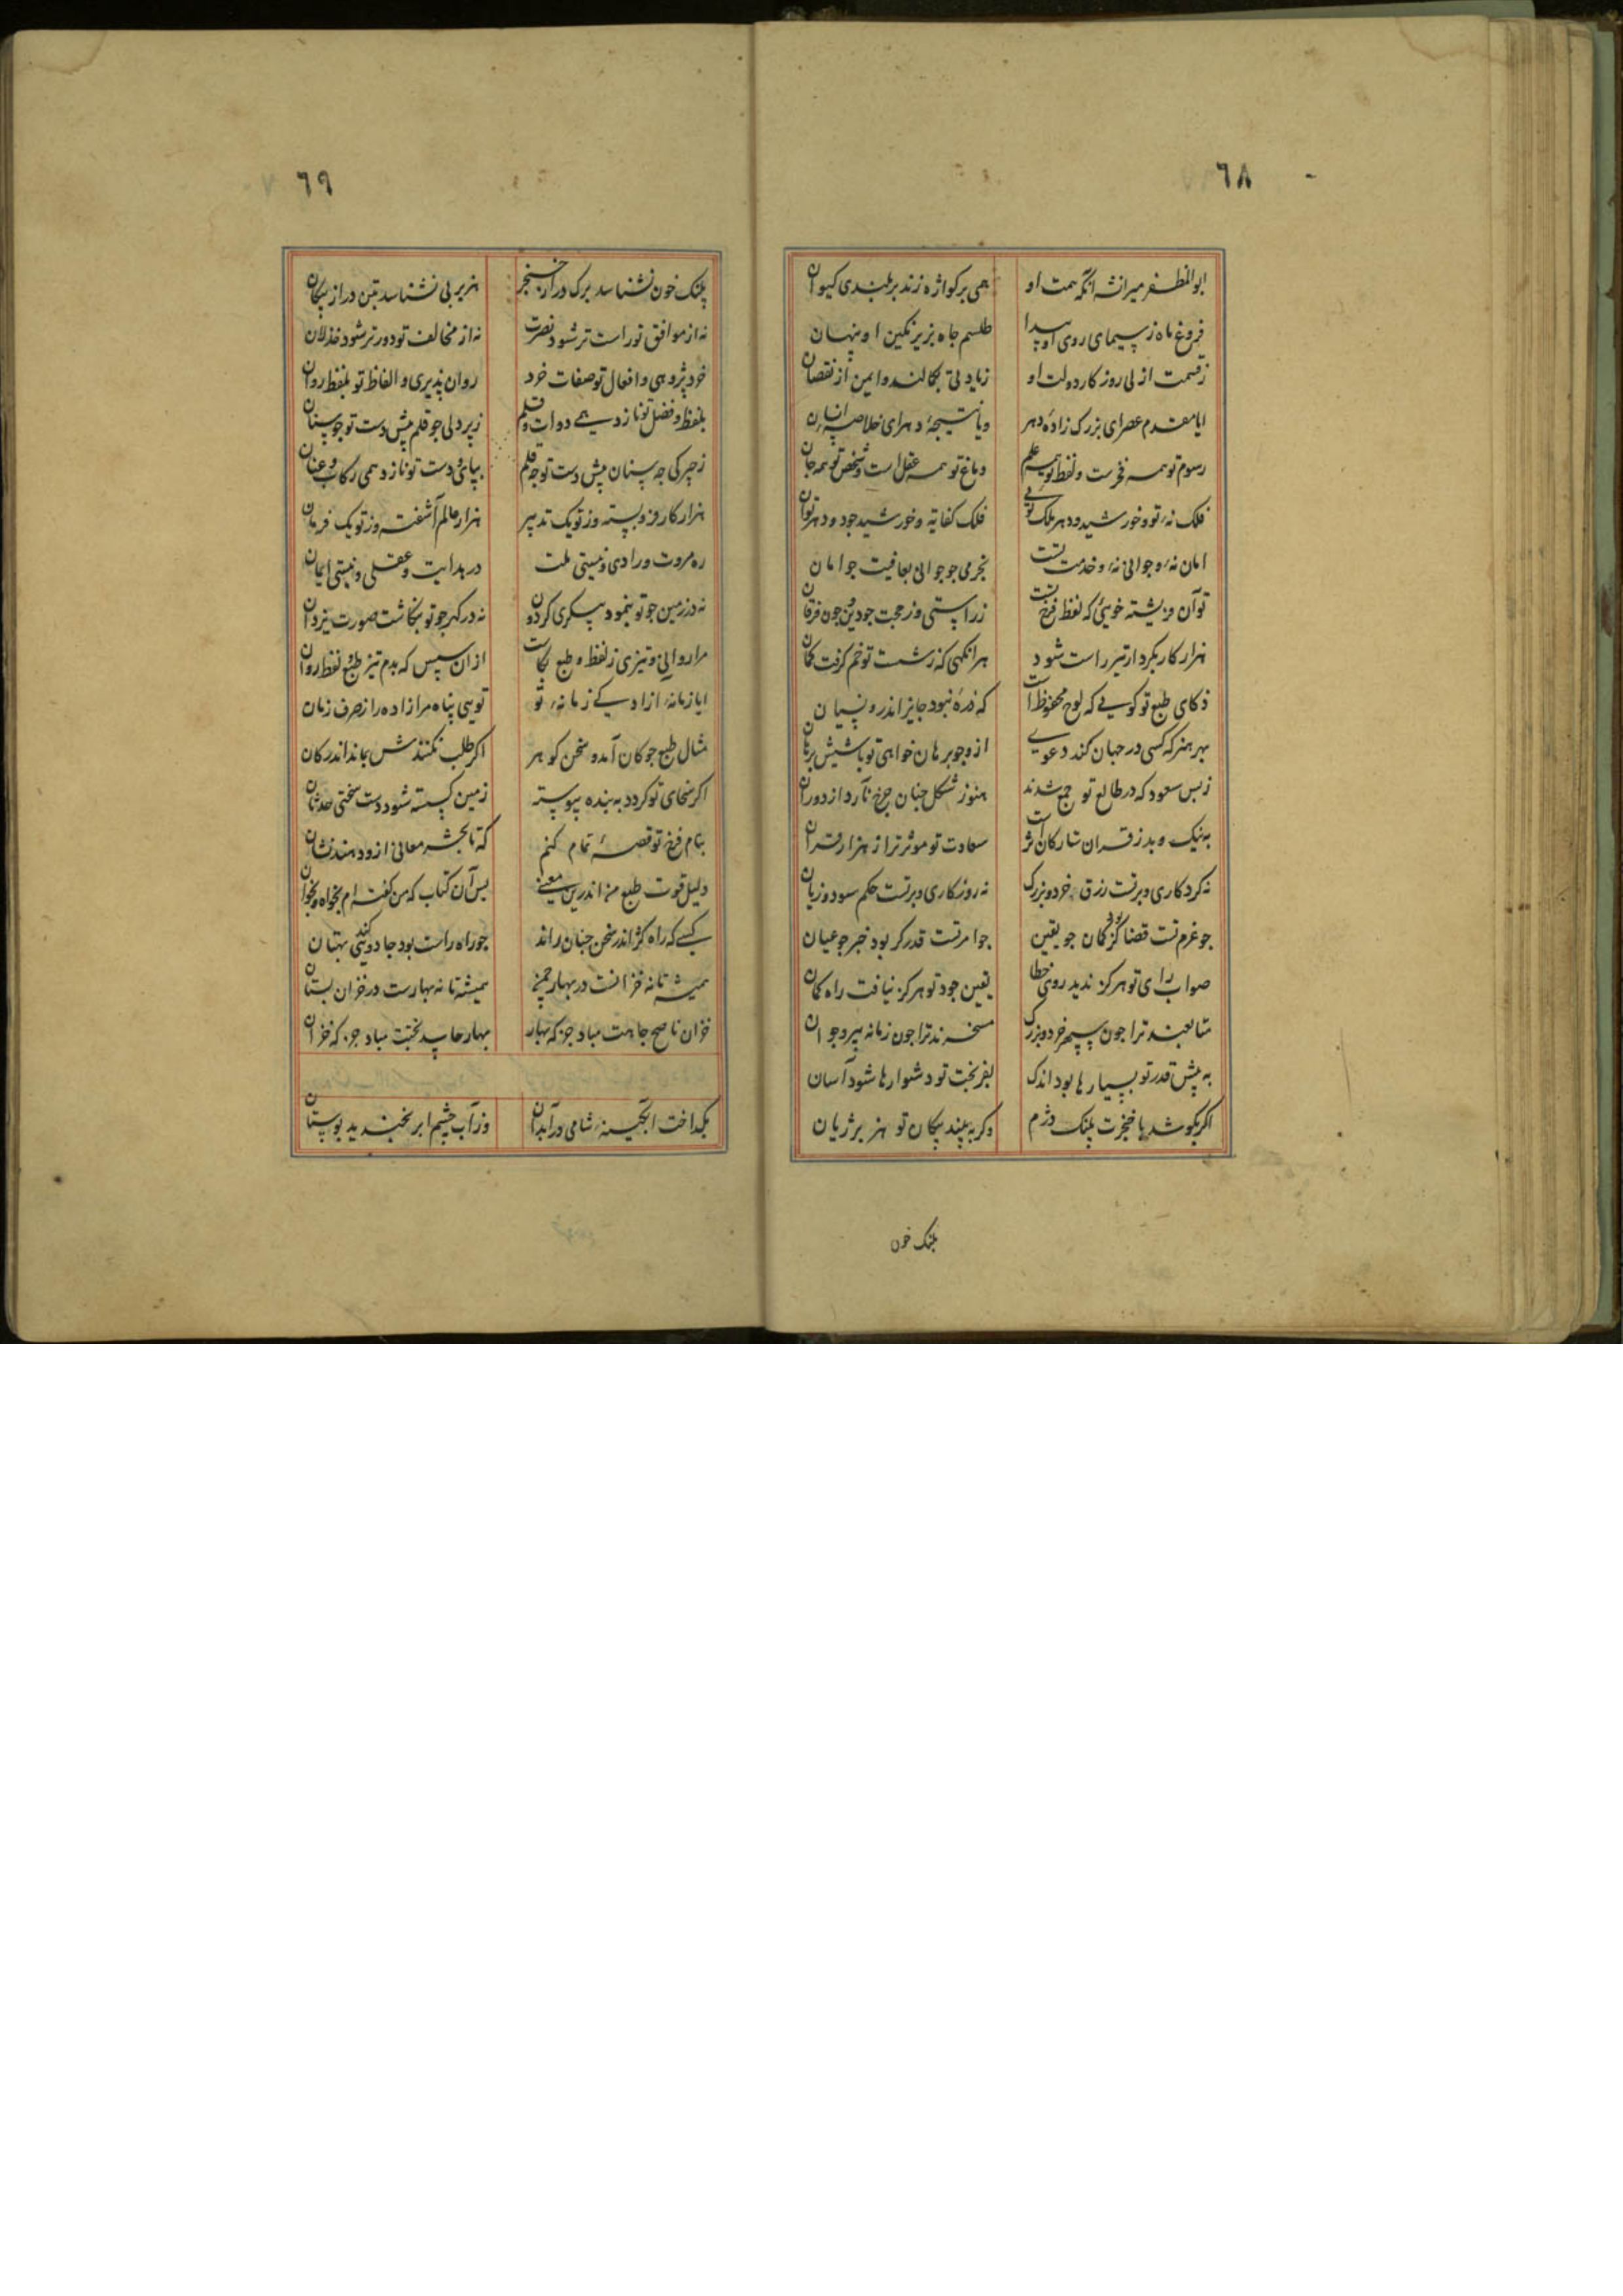 ٦٨
ابوالمظفر میرانشه انکه همت او همی برکواژه زند بر بلندی کیوان
فروغ ماه ز سیمای روی او پیدا طلسم جاه بزیر نکین او پنهان
ز قسمت ازلی روز کار دولت او زیادتی بکمالند و ایمن از نقصان
ایا مقدم عصر ای بزرک زاده دهر و یا نتیجهٔ دهر ای خلاصه انسان
رسوم تو همه فخرست و لفظ تو همه علم دماغ تو همه عقل است و شخص تو همه جان
فلک نهٔ تو و خورشید و دهر ملک توئی فلک کفایة و خورشید جود و دهر توان
امان نهٔ و جوانی نهٔ و خدمت تست بخرمی جو جوانی بعافیت جو امان
تو آن فریشته خوئی که لفظ فرخ تست ز راستی و ز حجت جو دین جون فرقان
هزار کار بکردار تیر راست شود هر انکهی که ز شست تو خم کرفت کمان
ذکای طبع تو کویی که لوح محفوظ است که ذرهٔ نبود جایز اندرو نسیان
بهر هنر که کسی در جهان کند دعوی ازو جو برهان خواهی تو باشیش برهان
ز بس سعود که در طالع تو جمع شدند هنوز شکل جنان جرخ نآرد از دوران
به نیک و بد ز قران ستارکان اثر است سعادت تو موثر تر از هزار قران
نه کردکاری و بر تست رزق خرد و بزرک نه روزکاری و بر تست حکم سود و زیان
جو عزم تست قضا کر بود کمان جو یقین جو امر تست قدر کر بود خبر جو عیان
صواب رای تو هرکز ندید روی خطا یقین جود تو هرکز نیافت راه کمان
متابعند ترا جون سپهر خرد و بزرک مسخرند ترا جون زمانه پیر و جوان
به پیش قدر تو بسیارها بود اندک بفر بخت تو دشوارها شود آسان
اکر بکوشد با خنجرت پلنک دژم وکر به بیند پیکان تو هزبر ژیان
پلنک خون
٦٩
پلنک خون نشناسد برک در از خنجر هزبر پی نشناسد بتن در از پیکان
نه از موافق تو راست تر شود نصرت نه از مخالف تو دورتر شود خذلان
خرد پژوهی و افعال تو صفات خرد روان پذیری و الفاظ تو بلفظ روان
بلفظ و فضل تو نازد همی دوات و قلم ز پردلی جو قلم پیش دست تو جو سنان
ز جیرکی جه سنان پیش دست تو جه قلم بپای و دست تو نازد همی رکاب و عنان
هزار کار فرو بسته وز تو یک تدبیر هزار عالم آشفته وز تو یک فرمان
ره مروت و رادی و نیستی ملت در هدایت و عقلی و نیستی ایمان
نه در زمین جو تو بنمود پیکری کردون نه در کهر جو تو بنکاشت صورت یزدان
مرا روانی و تیزی ز لفظ و طبع بکاست از ان سپس که بدم تیز طبع و لفظ روان
ایا زمانهٔ ازادکی زمانهٔ تو تویی پناه مر ازاده را ز صرف زمان
مثال طبع جو کان آمد و سخن کوهر اکر طلب نکنندش بماند اندر کان
اکر سخای تو کردد به بنده پیوسته ز من کسسته شود دست سختی حدثان
بنام فرخ تو قصهٔ تمام کنم که تا بحشر معانی ازو دهند نشان
دلیل قوت طبع من اندرین معنی بس آن کتاب که من کفته‌ام بخواه و بخوان
کسی که راه کژ اندر سخن جنان راند جو راه راست بود جادوئی کند بهتان
همیشه تا نه خزانست در بهار جمن همیشه تا نه بهارست در خزان بستان
خزان ناصح جاهت مباد جز که بهار بهار حاسد بختت مباد جز که خزان
بکداخت ابکینهٔ شامی در آبدان وز آب چشم ابر بخندید بوستان